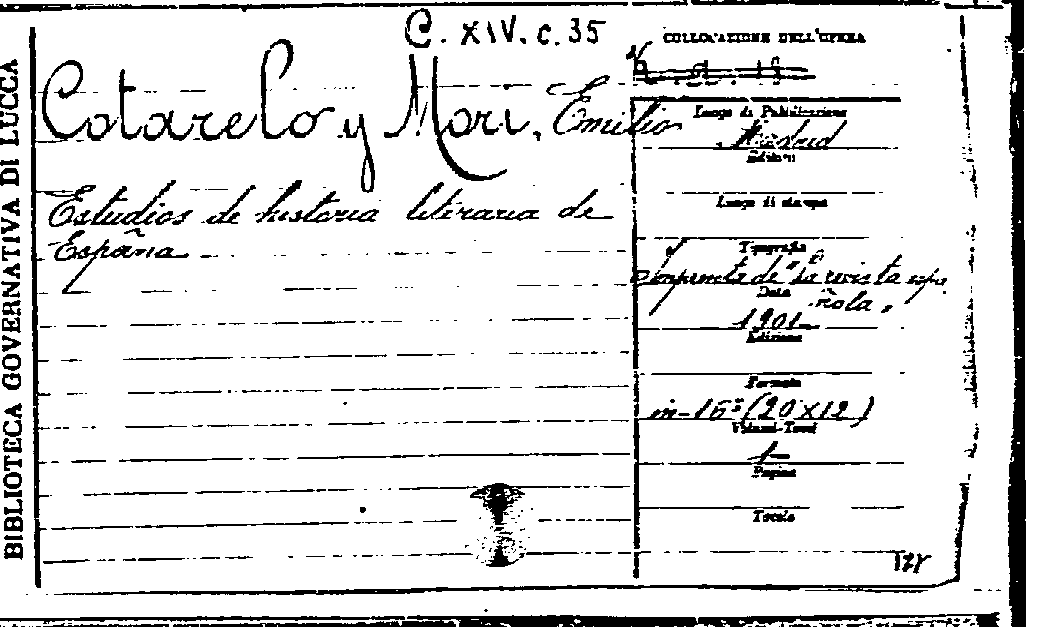 BIBLIOTECA GOVERNATIVA DI LUCCA
C. XIV. c. 35
COLLOCAZIONE DELL'OPERA
Cotarelo y Mori, Emilio
Estudios de historia literaria de
España
Luogo di Pubblicazione
Madrid
Editori
Luogo di stampa
Tipografia
Imprenta de "La revista espa
ñola"
Data
1901
Edizione
Formato
in-16º (20X12)
Volumi-Tomi
1
Pagine
Tavole